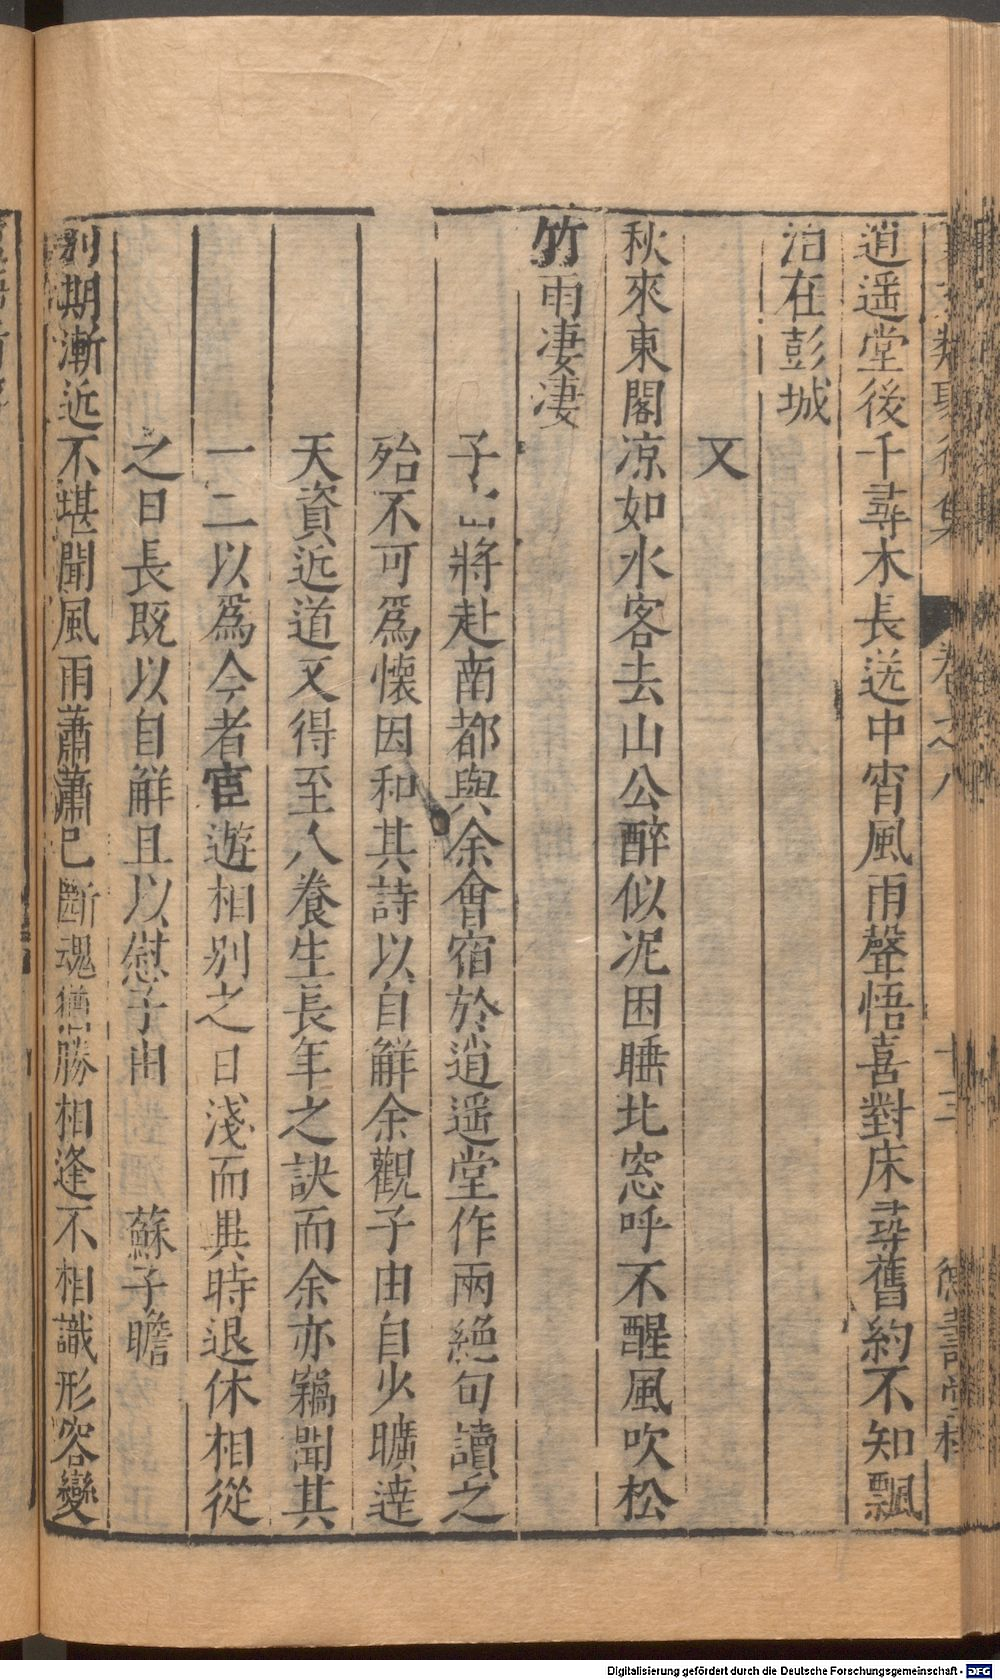 逍遥堂後千尋木長送中宵風雨聲悟喜對床尋舊約不知飄
泊在彭城
又
秋來東閣凉如水客去山公醉似泥困睡北窓呼不醒風吹松
竹雨凄凄
子由將赴南都與余會宿於逍遥堂作兩絶句讀之
殆不可爲懷因和其詩以自觧余觀子由自少曠達
天資近道又得至人養生長年之訣而余亦竊聞其
一二以爲今者宦遊相别之日淺而異時退休相從
之日長既以自觧且以慰子由 蘇子瞻
别期漸近不堪聞風雨蕭蕭已斷魂猶勝相逢不相識形容變
類聚 集 卷之八 十三 德壽堂梓
Digitalisierung gefördert durch die Deutsche Forschungsgemeinschaft - DFG